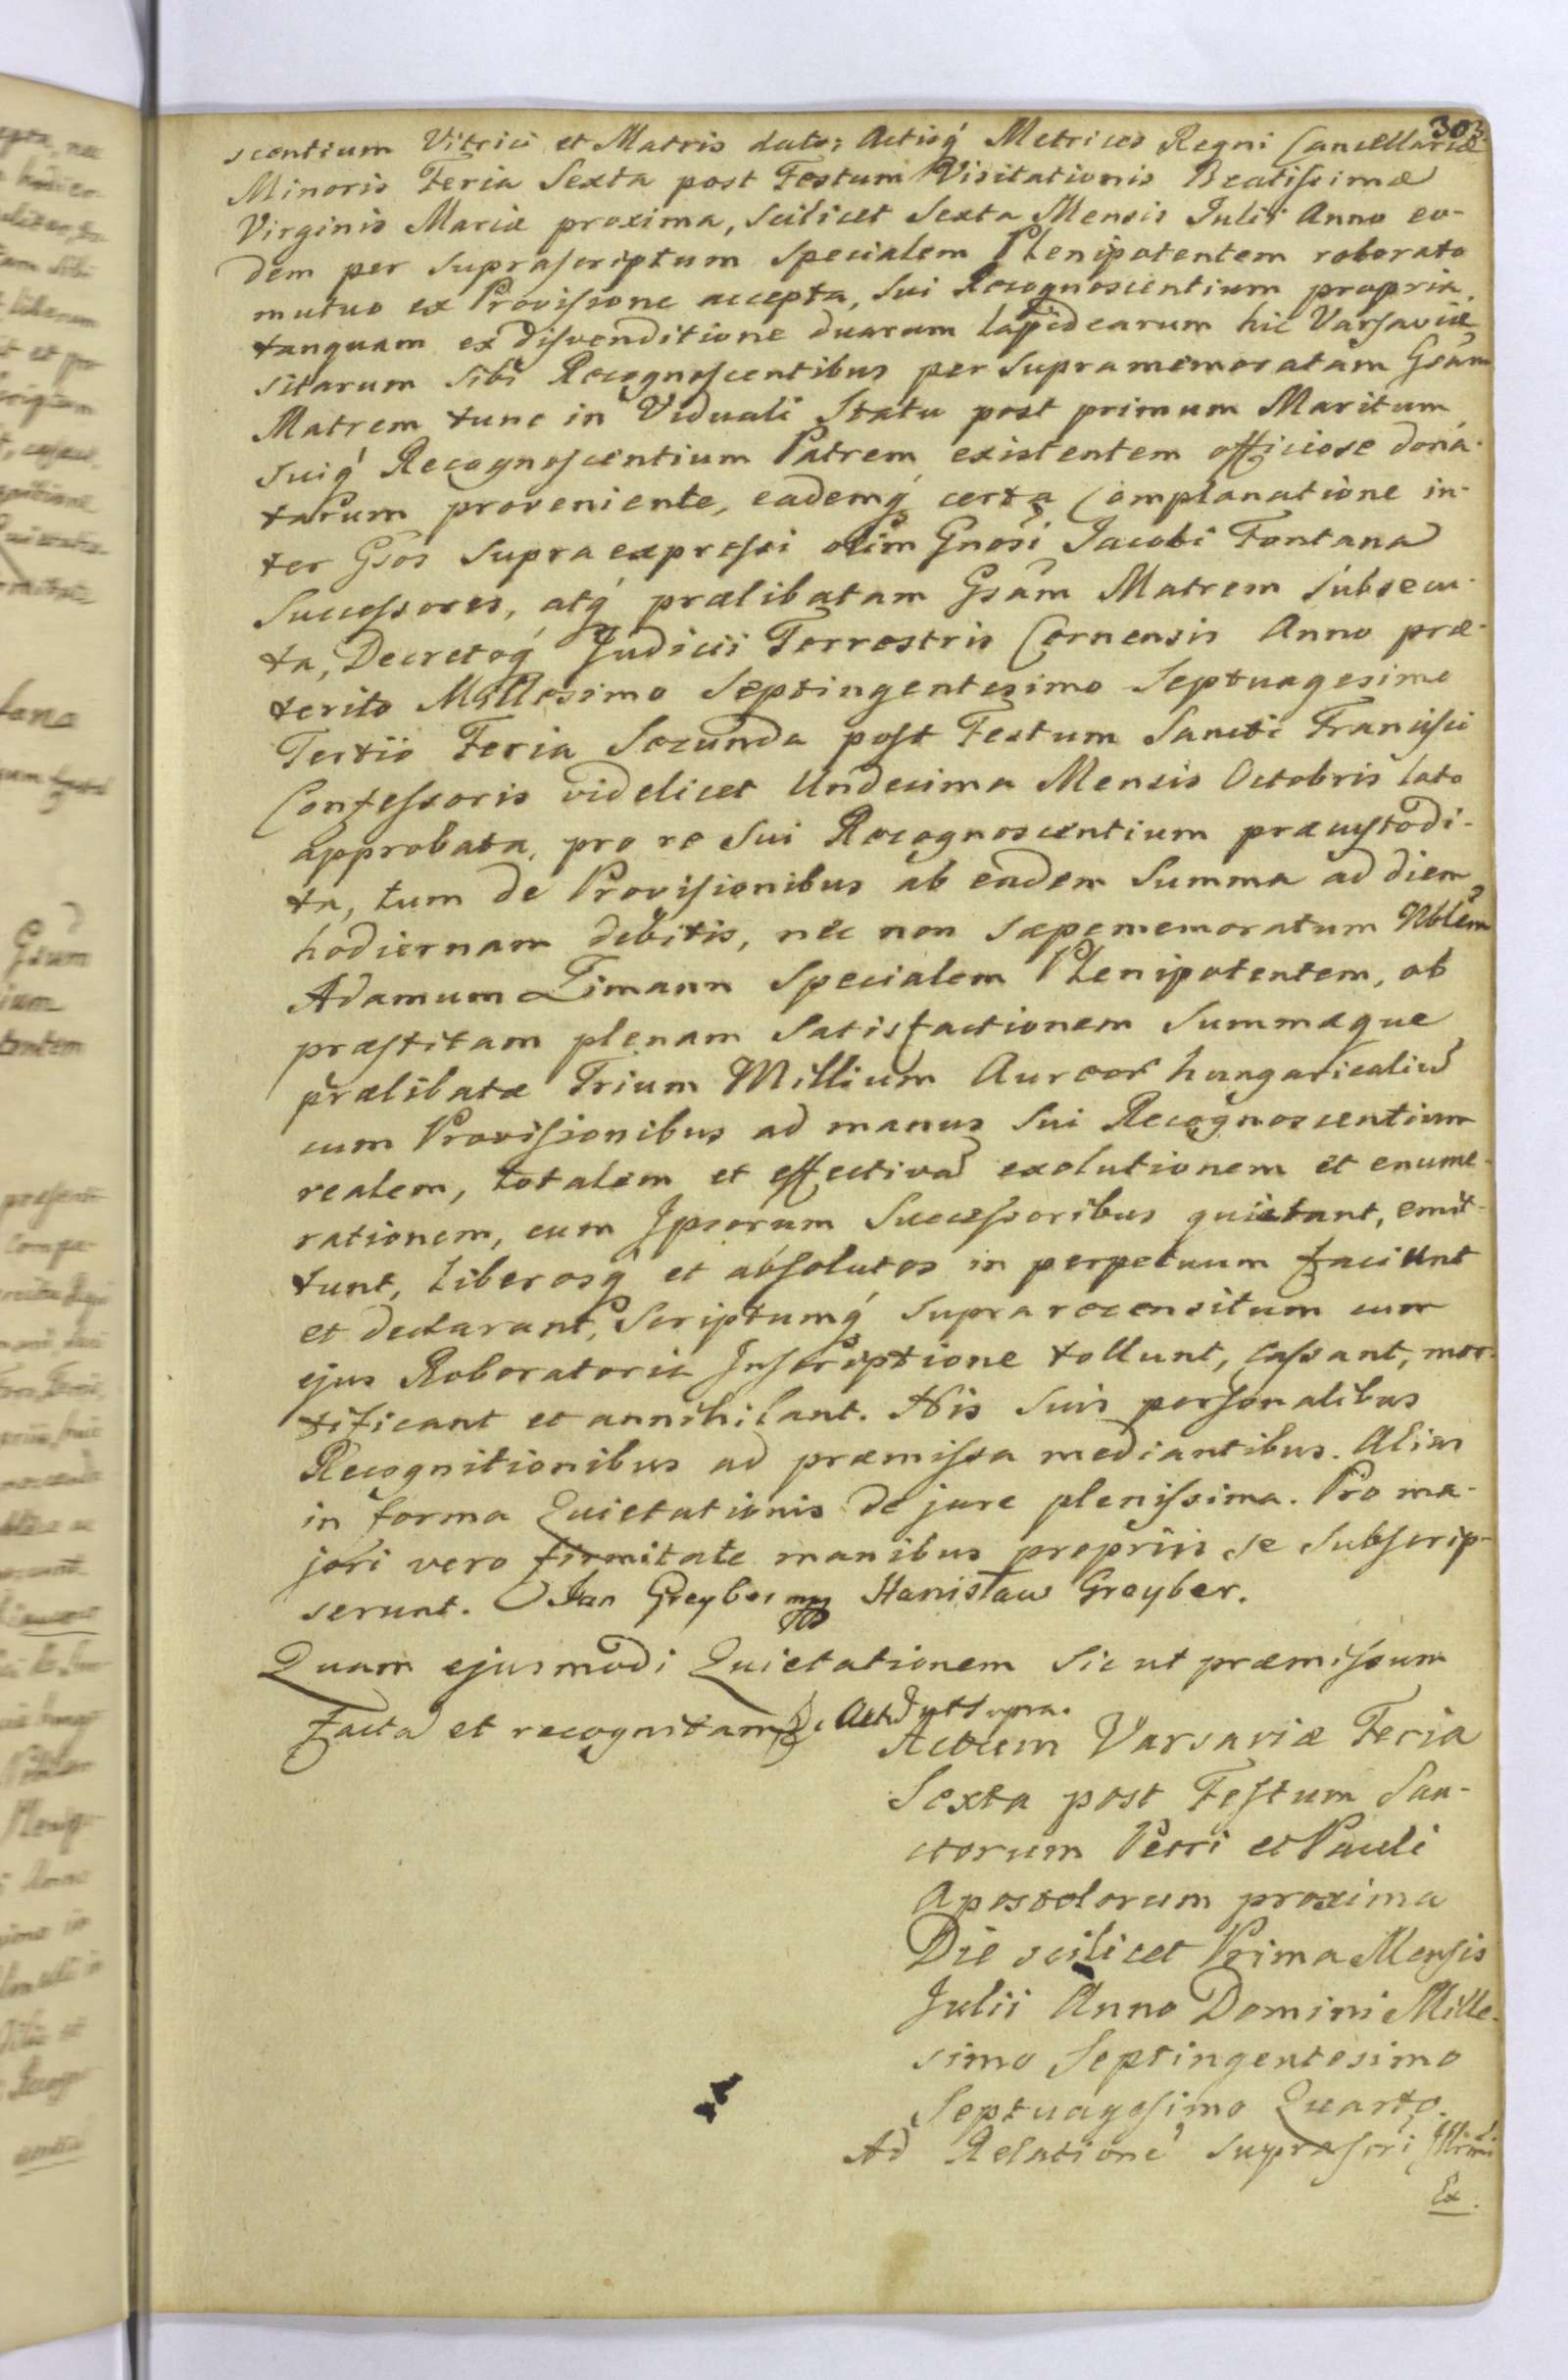 303.
scentium Vitrici et Matris dato; Actisq́ Metrices Regni Cancellariæ
Minoris Feria Sexta post Festum Visitationis Beatissimæ
Virginis Mariæ proxima, scilicet Sexta Mensis Julii Anno eo-
dem per suprascriptum specialem Plenipotentem roborato
mutuo ex Provisione accepta, sui Recognoscentium propria,
tanquam ex disvenditione duarum lapidearum hic Varsaviæ
sitarum sibi Recognoscentibus per supramemoratam Gsam
Matrem tunc in Viduali Statu post primum Maritum
suiq́ Recognoscentium Patrem existentem officiose dona-
tarum proveniente, eademq́ certa Complanatione in-
ter Gsos supra expressi olim Gnosi Jacobi Fontana
Successores, atq́ prælibatam Gsam Matrem subsecu-
ta, Decretoq́ Judicii Terrestris Cernensis Anno præ-
terito Millesimo Septingentesimo Septuagesimo
Tertio Feria Secunda post Festum Sancti Francisci
Confessoris videlicet Undecima Mensis Octobris lato
approbata, pro re sui Recognoscentium præcustodi-
ta, tum de Provisionibus ab eadem Summa ad diem
hodiernam debitis, nec non sæpememoratum Nblem
Adamum Limann Specialem Plenipotentem, ob
præstitam plenam satisfactionem Summæque
prælibatæ Trium Millium Aureor hungaricaliu
cum Provisionibus ad manus sui Recognoscentium
realem, totalem et effectiva exolutionem et enume-
rationem, cum Ipsorum Successoribus quietant, emit-
tunt, liberosq́ et absolutos in perpetuum faciunt
et declarant, Scriptumq́ supra recensitum cum
ejus Roboratoria Inscriptione tollunt, cassant, mor-
tificant et annihilant. His suis personalibus
Recognitionibus ad præmissa mediantibus. Alias
in forma Quietationis de jure plenissima. Pro ma-
jori vero firmitate manibus propriis se subscrip-
serunt. Jan Greyber mpp Stanisław Greyber.
Quam ejusmodi Quietationem sic ut præmissum
facta et recognitam Act ut supra.
Actum Varsaviæ Feria
Sexta post Festum San-
ctorum Petri et Pauli
Apostolorum proxima
Die scilicet Prima Mensis
Julii Anno Domini Mille-
simo Septingentesimo
Septuagesimo Quarto.
Ad Relatione suprascri Illrmi
Ex.